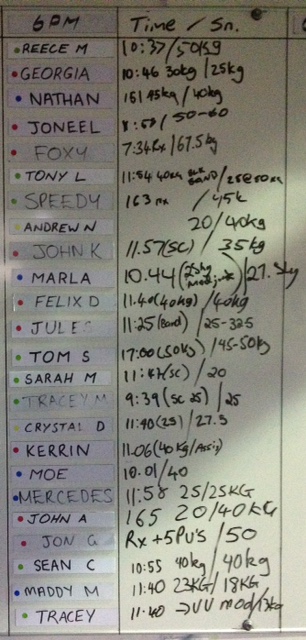 6PM Time / Sn.
REECE M 10:37/50kg
GEORGIA 10:46 30kg/25kg
NATHAN 161 45kg/40kg
JONEEL 8:58/50-60
FOXY 7:34Rx/67.5kg
TONY L 11:54 40kg BAND/25@50kg
SPEEDY 163 rx /45k
ANDREW N 20/40kg
JOHN K 11.57(SC)/35kg
MARLA 10.44
FELIX D 11.40(40kg)/40kg
JULES 11:25(Band)/25-32.5
TOM S 17:00(50kg)/45-50kg
SARAH M 11:47(SC)/20
TRACEY M 9:39(SC 25)/25
CRYSTAL D 11:40(25)/27.5
KERRIN 11.06(40kg/Assis)
MOE 10.01/40
MERCEDES 11:58 25/25KG
JOHN A 165 20/40KG
JON G Rx+5PU's/50
SEAN C 10:55 40kg/40kg
MADDY M 11:40 23KG/18KG
TRACEY 11:40 →VU mod/13kg